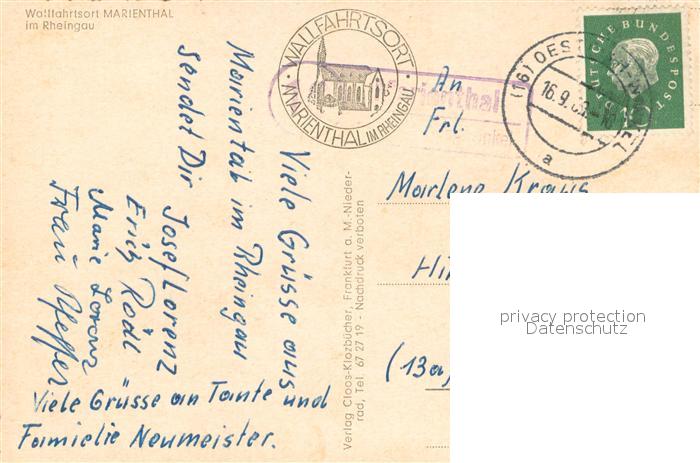 Wallfahrtsort MARIENTHAL
im Rheingau
· WALLFAHRTSORT ·
MARIENTHAL IM RHEINGAU
ienthal
DEUTSCHE BUNDESPOST
10
(16) OEST
16.9.
a
An
Frl.
Marlene Kraus
Hil
(13a)
Viele Grüsse aus
Marientah im Rheingau
sendet Dir
Josef Lorenz
Erich Rödl
Marie Lorenz
Frau Pfeffer
Viele Grüsse an Tante und
Familie Neumeister.
Verlag Cloos-Klozbücher, Frankfurt a. M.-Nieder-
rad, Tel. 67 27 19 - Nachdruck verboten
privacy protection
Datenschutz